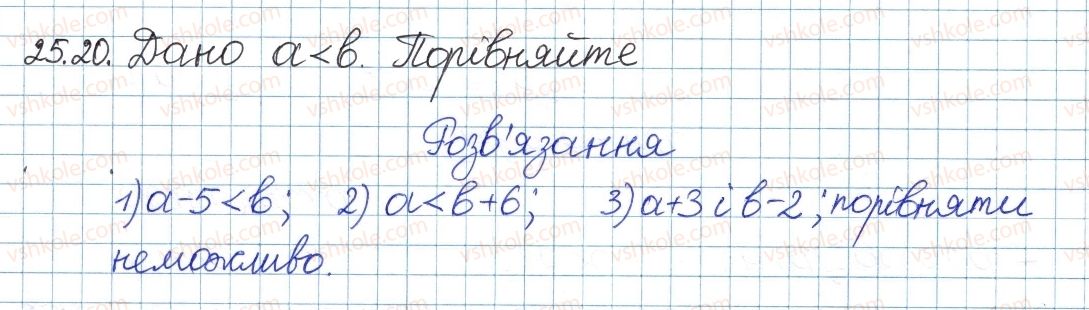 25.20. Дано a<b. Порівняйте
Розв'язання
1) a-5<b; 2) a<b+6; 3) a+3 і b-2; порівняти
неможливо.